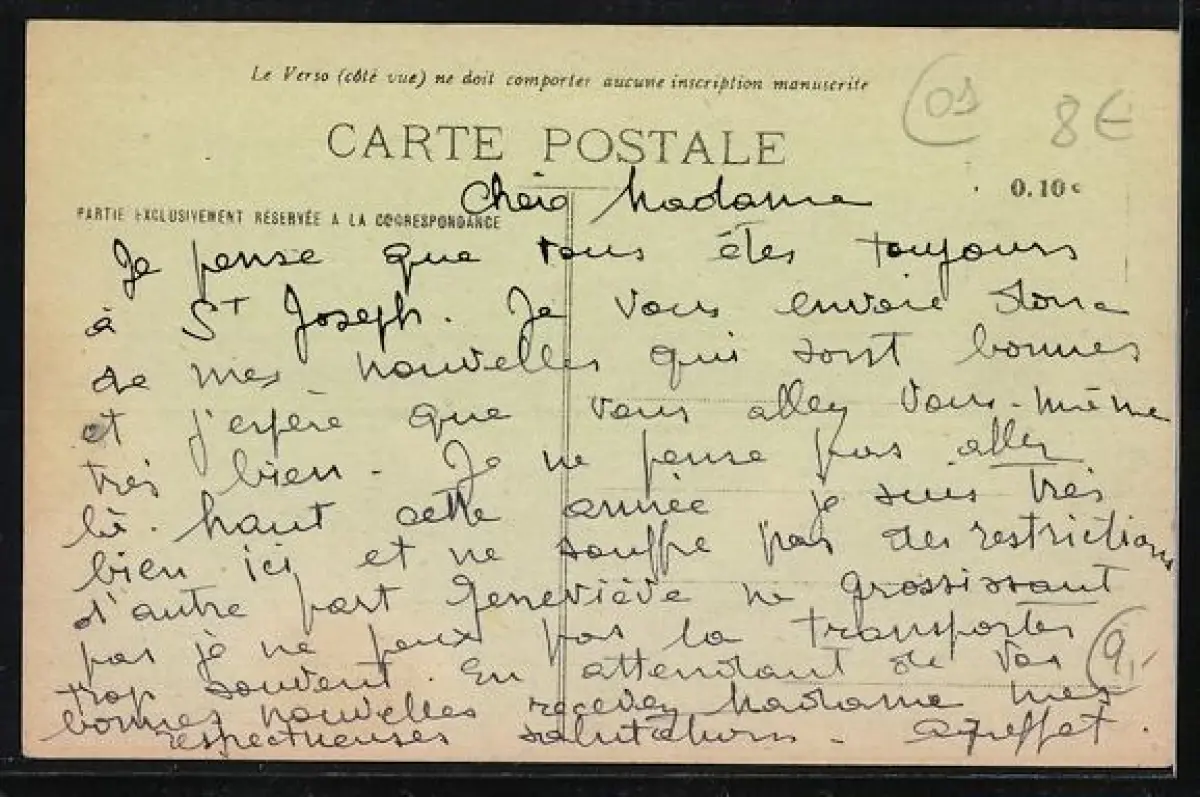 Le Verso (côté vue) ne doit comporter aucune inscription manuscrite
CARTE POSTALE
8€
0.10 c
PARTIE EXCLUSIVEMENT RÉSERVÉE A LA CORRESPONDANCE
Madame
Je pense que vous êtes toujours
à St Joseph. Je vous envoie donc
de mes nouvelles qui sont bonnes
et j'espère que vous allez vous-même
très bien. Je ne pense pas aller
là-haut cette année je suis très
bien ici et ne souffre pas des restrictions
d'autre part Geneviève ne grossissant
pas je ne peux pas la transporter
trop souvent. En attendant de vos
bonnes nouvelles recevez Madame mes
respectueuses salutations.
9,-